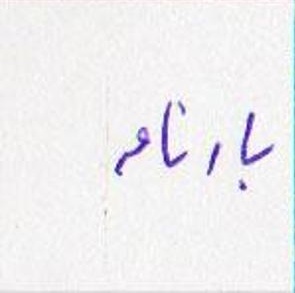 بارنام